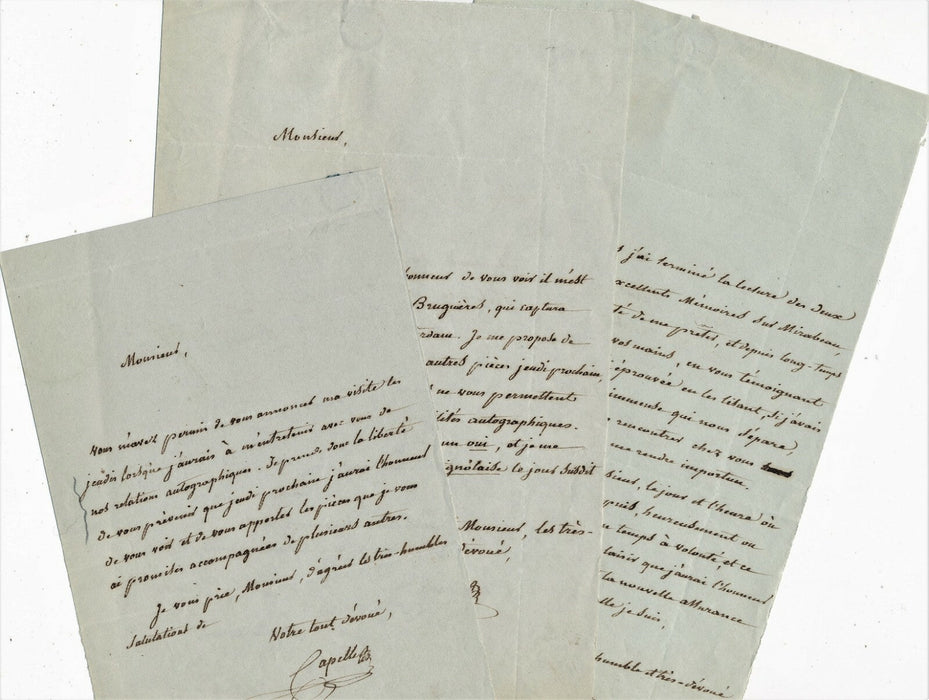 Monsieur,
vous m'avez permis de vous annoncer ma visite les
jeudis lorsque j'aurais à m'entretenir avec vous de
nos relations autographiques. Je prends donc la liberté
de vous prévenir que jeudi prochain j'aurai l'honneur
de vous voir et de vous apporter les pièces que je vous
ai promises accompagnées de plusieurs autres.
Je vous prie, Monsieur, d'agréer les très-humbles
salutations de
Votre tout dévoué,
Capelle
Monsieur,
honneur de vous voir il m'est
Bruguières, qui captura
rdam. Je me propose de
autres pièces jeudi prochain,
ne vous permettent
ilités autographiques.
un oui, et je me
ignolaise le jour susdit
Monsieur, les très-
dévoué,
j'ai terminé la lecture des deux
excellents Mémoires sur Mirabeau,
té de me prêter, et depuis long-temps
vos mains, en vous témoignant
éprouvée en les lisant, si j'avais
immense qui nous sépare,
rencontrer chez vous
me rendre importun.
sieur, le jour et l'heure où
puis heureusement ou
temps à volonté, et ce
laisir que j'aurai l'honneur
la nouvelle assurance
lle je suis,
humble et très-dévoué